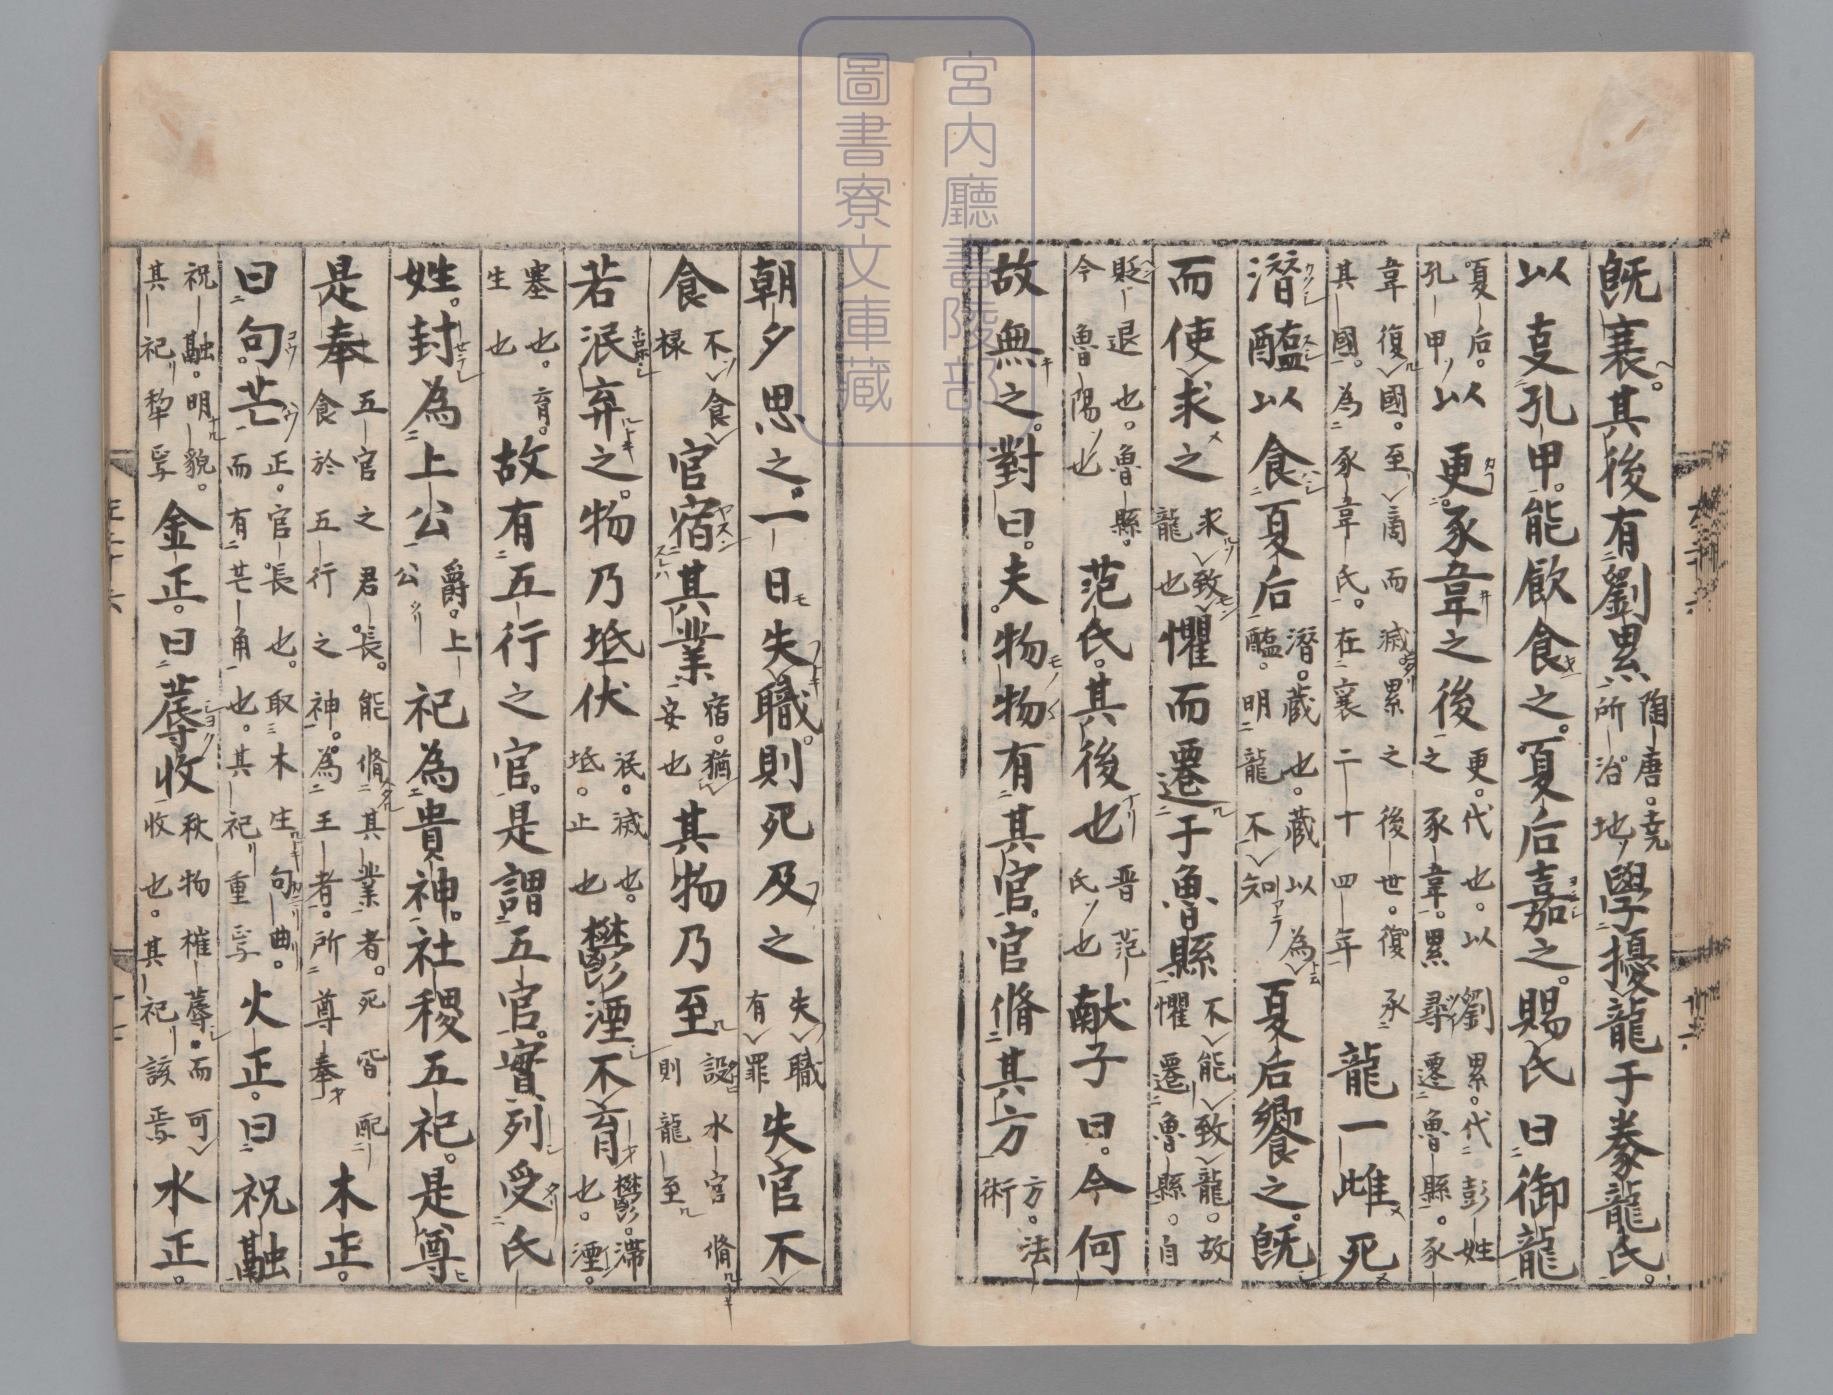 既衰。其後有劉累陶唐。堯所治地學擾龍于豢龍氏。
以㕝孔甲。能飲食之。夏后嘉之。賜氏曰御龍
夏后。孔甲以更豕韋之後更。代也。以劉累。代彭姓之豕韋。累尋遷魯縣。豕
韋復國。至商而滅累之後世。復承其國。為豕韋氏。在襄二十四年龍一雌死
潛醢以食夏后潛。藏也。藏以為醢。明龍不知夏后饗之。既
而使求之求致龍也懼而遷于魯縣不能致龍。故懼遷魯縣。自
貶退也。魯縣。今魯陽也范氏。其後也晉范氏也献子曰。今何
故無之。對曰。夫物物有其官。官脩其方方。法術
朝夕思之。一日失職。則死及之失職有罪失官不
食不食祿官宿其業宿。猶安也其物乃至設水官脩則龍至
若泯弃之。物乃坻伏泯。滅也。坻。止也鬱湮不育鬱。滯也。湮。
塞也。育。生也故有五行之官。是謂五官。實列受氏
姓。封為上公爵。上公祀為貴神。社稷五祀。是尊
是奉五官之君。長。能脩其業者。死皆配食於五行之神。為王者。所尊奉木正。
曰句芒。正。官長也。取木生句曲。而有芒角也。其祀重焉火正。曰祝融
祝融。明貌。其祀犂焉金正。曰蓐收秋物摧蓐。而可收也。其祀該焉水正。
宮内廳書陵部
圖書寮文庫藏